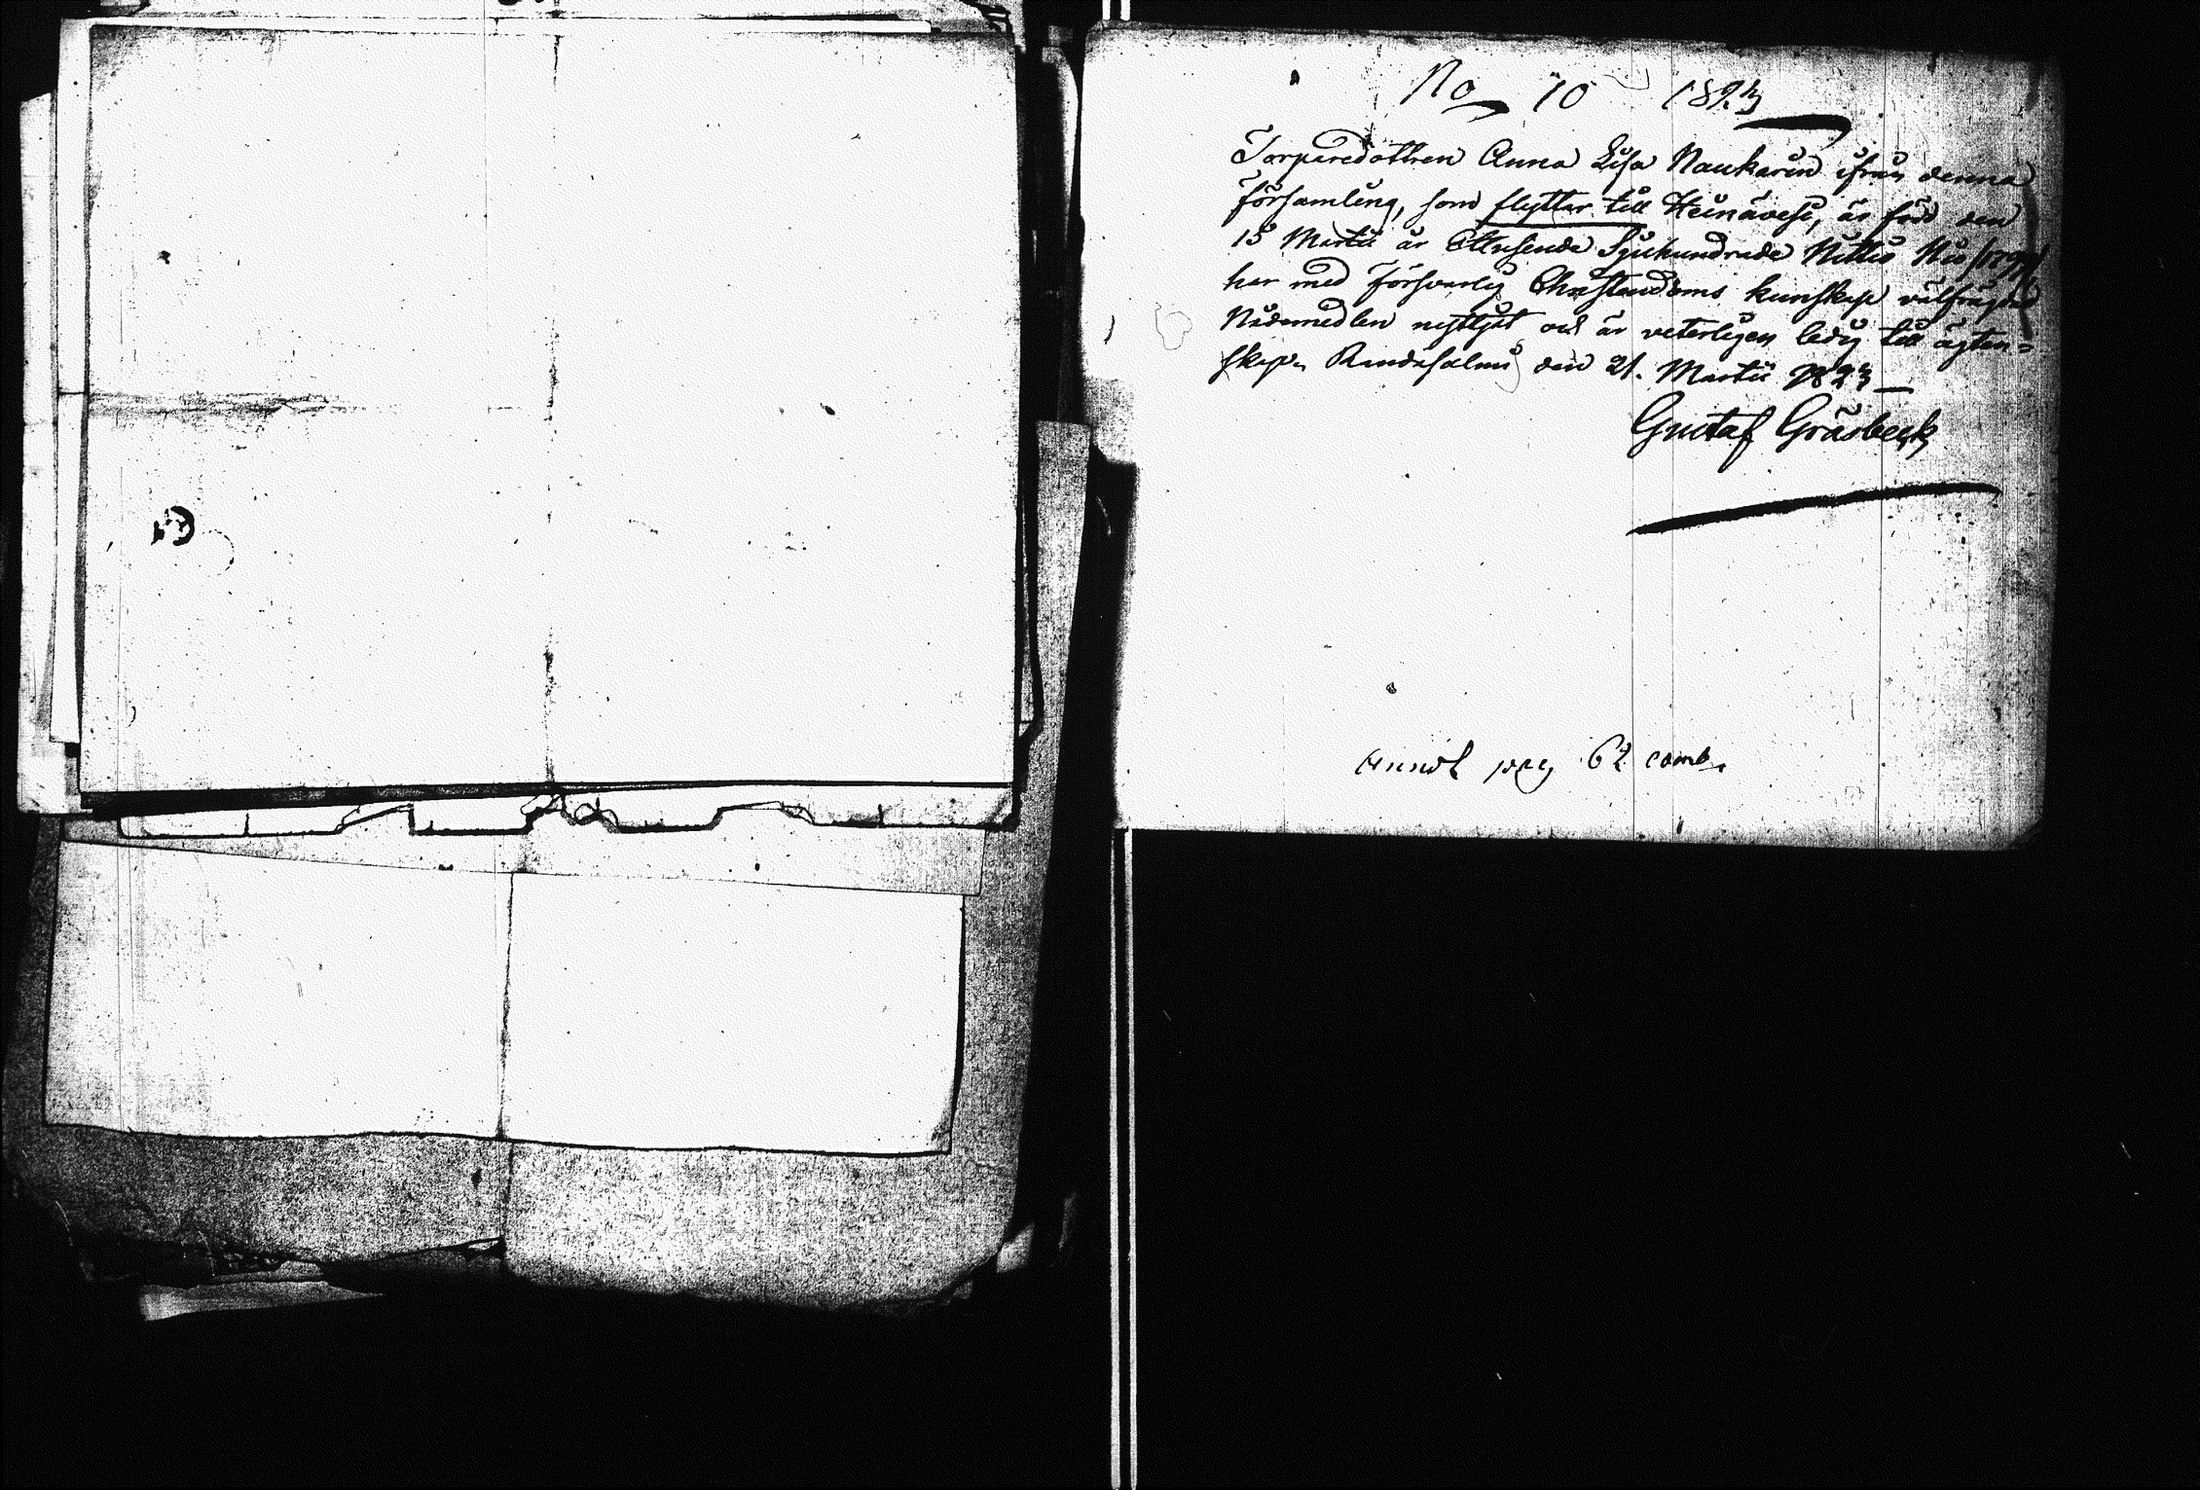 No 10 1823
Torparedottren Anna Lisa Naukarin ifrån denna
församling, som flyttar till Heinävesi, är född den
15 Martii år Ettusende Sjuhundrade Nittio Nio /1799/
har med försvarlig Christendoms kunskap välfrägdad
Nådemedlen nyttjat och är veterligen ledig till ägten-
skap. Randasalmi den 21. Martii 1823
Gustaf Gråsbeck
pag 62 comb.